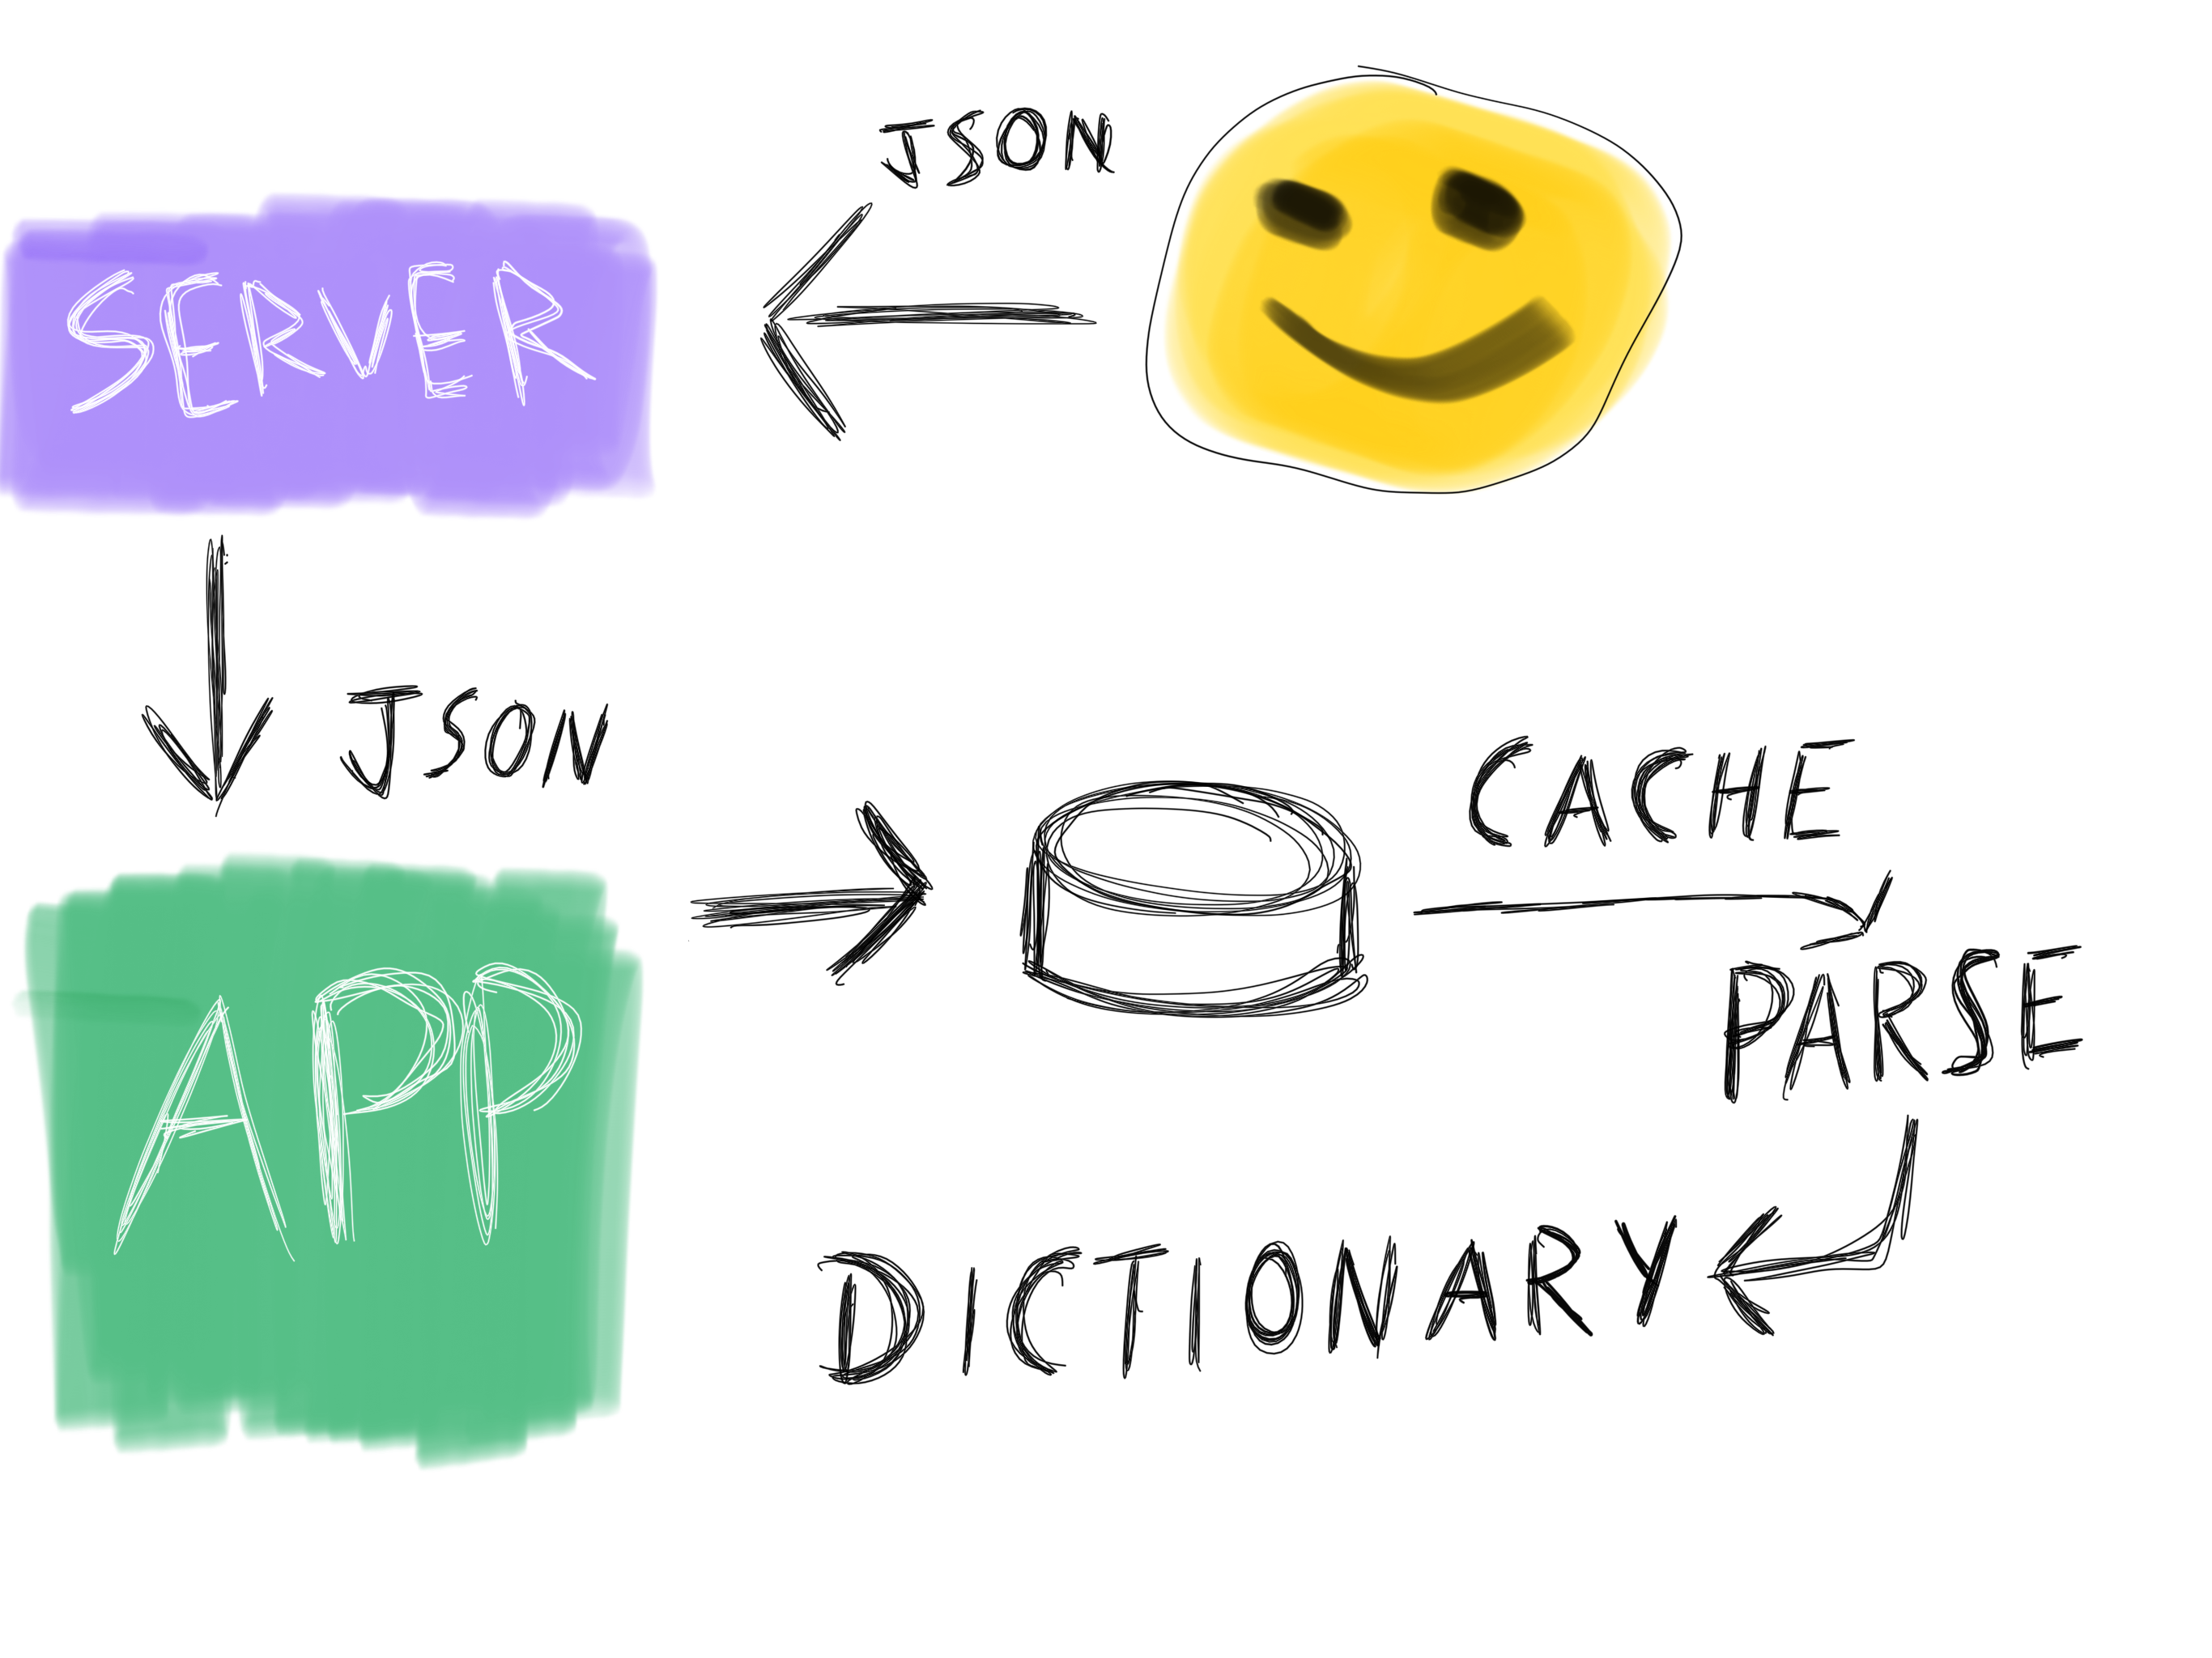 JSON
SERVER
JSON
CACHE
APP
PARSE
DICTIONARY